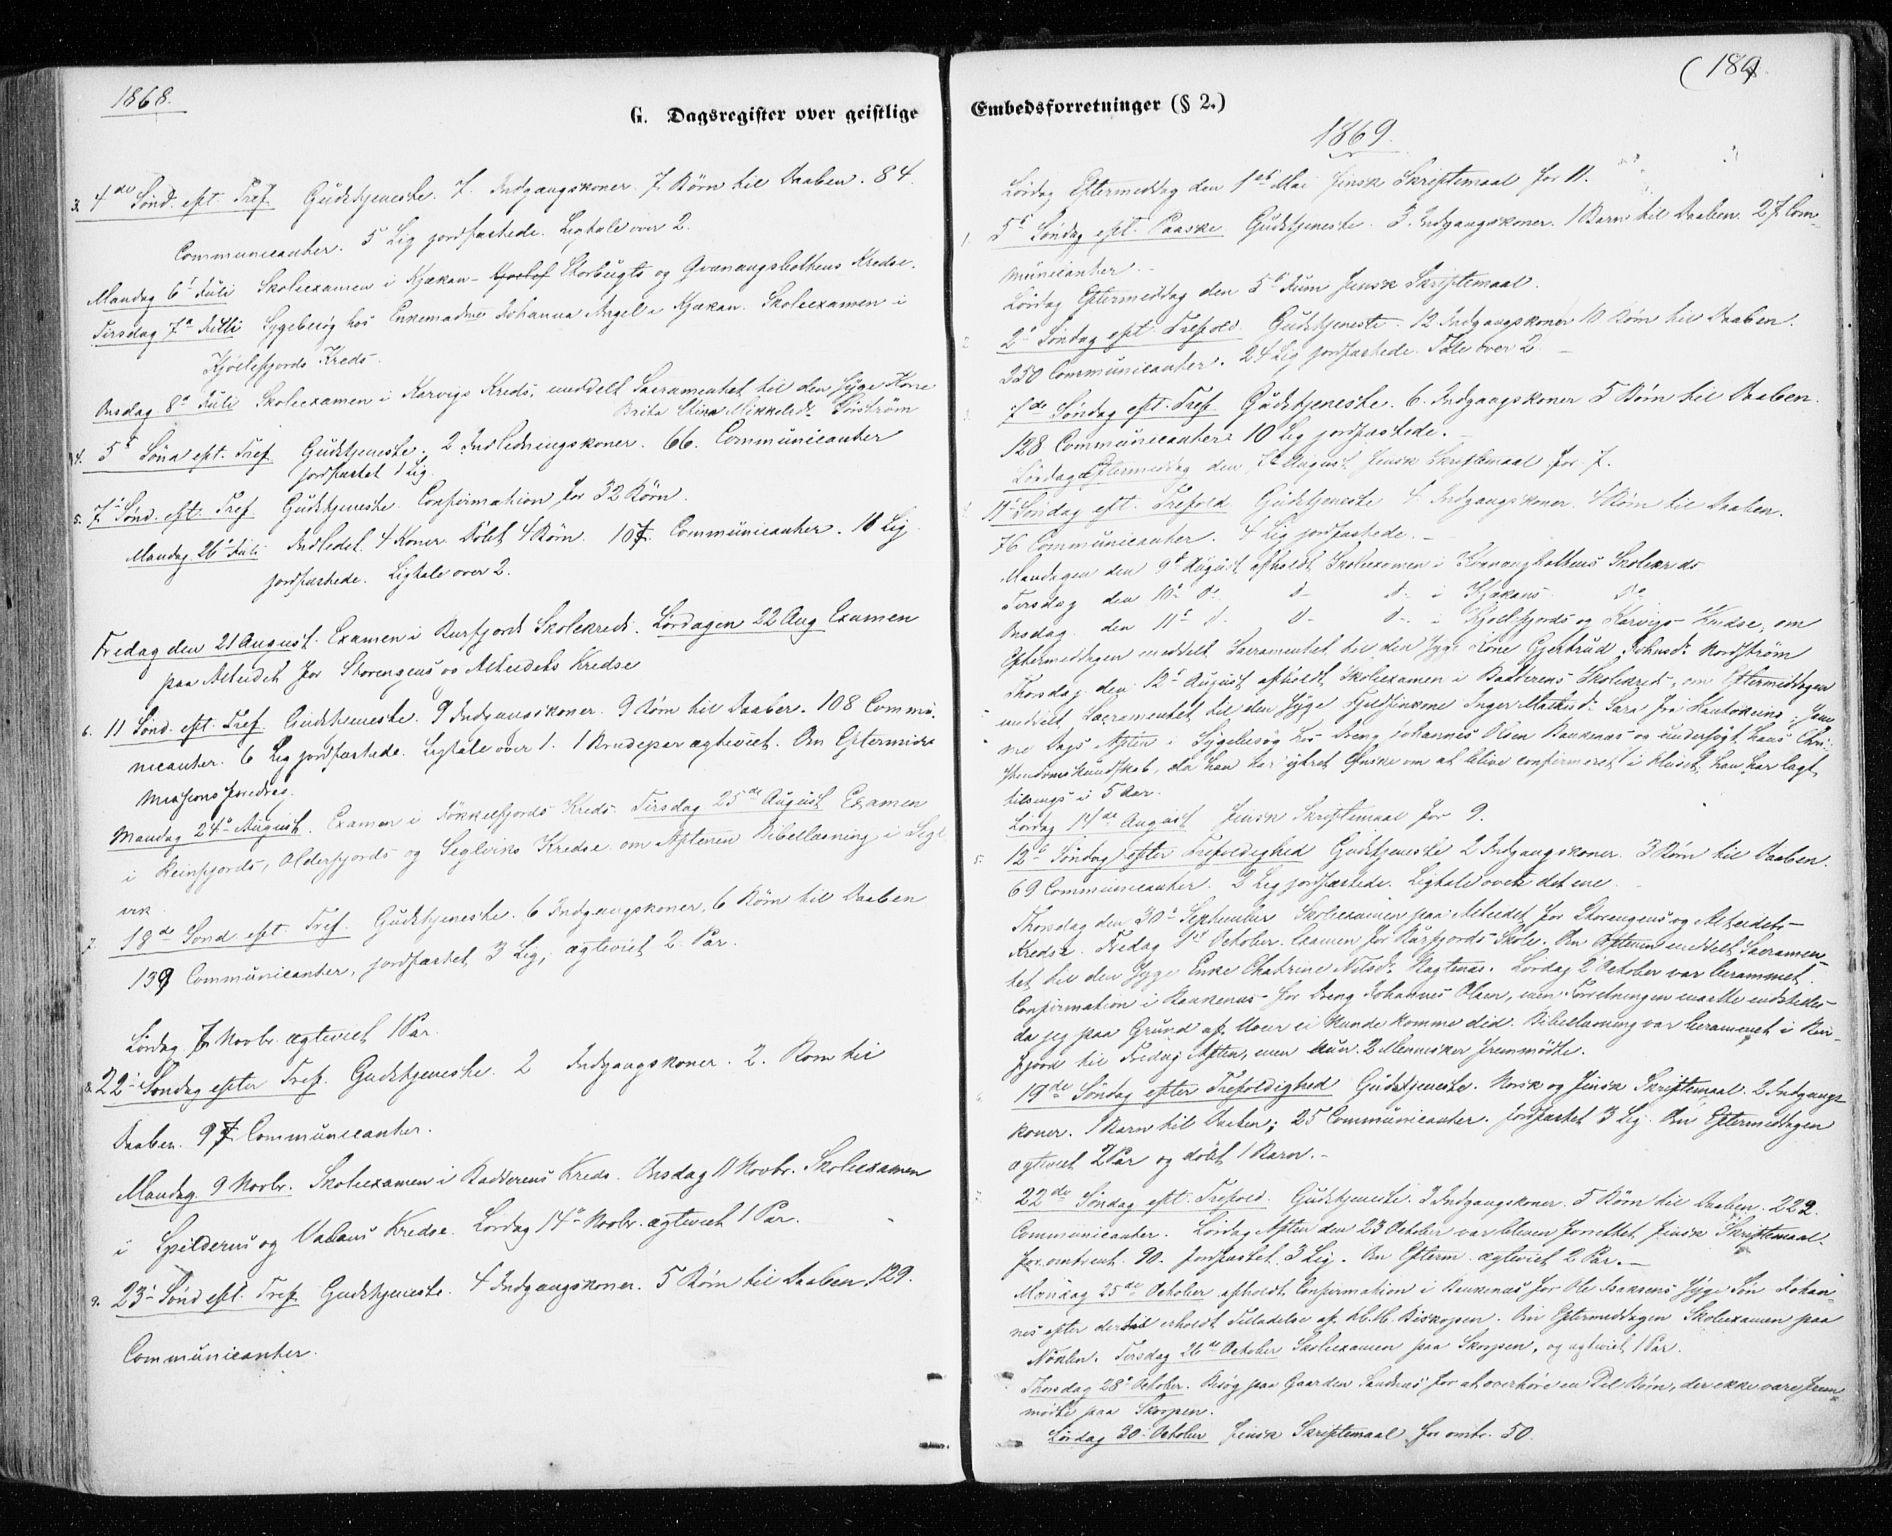 1868.
G. Dagsregister over geistlige
3. 4de Sønd. eft. Tref. Gudstjeneste. 7. Indgangskoner. 7. Børn til Daaben. 84.
Communicanter. 5 Lig jordfæstede. Ligtale over 2.
Mandag 6t Juli Skoleexamen i Kjækan- Storbugts og Qvænangsbottens Kredse.
Tirsdag 7de Juli Sygebesøg hos Enkemadme Johanna Angel i Kjækan. Skoleexamen i
Kjøllefjords Kreds.
Onsdag 8de Juli Skoleexamen i Karvigs Kreds, meddelt Sacramentet til den syge Kone
Brita Stina Mikkelsdt. Sørstrøm
4. 5te Sønd eft. Tref. Gudstjeneste. 2 Indledningskoner. 66. Communicanter
jordfæstet 1 Lig.
5. 7de Sønd. eft. Tref. Gudstjeneste Confirmation for 32 Børn.
Mandag 26t Juli Indledet 4 Koner. Døbt 4 Børn. 107. Communicanter. 10 Lig
jordfæstede. Ligtale over 2.
Fredag den 21 August. Examen i Burfjord Skolekreds. Lørdagen 22 Aug Examen
paa Alteidet for Storengens og Alteidets Kredse
6. 11 Sønd. eft. Tref. Gudstjeneste. 9 Indgangskoner. 9 Børn til Daaben. 108 Commu-
nicanter. 6 Lig jordfæstede. Ligtale over 1. 1 Brudepar ægteviet. Om Eftermidd.
Mandag 24de August. Examen i Jøkkelfjords Kreds. Tirsdag 25de August Examen
i Reinfjords, Olderfjords og Seglviks Kredse om Aftenen Bibellæsning i Segl
vik
7. 18de Sønd eft. Tref. Gudstjeneste. 6 Indgangskoner, 6 Børn til Daaben
139 Communicanter, jordfæstet 3 Lig, ægteviet 2 Par.
Lørdag 7 Novbr. ægteviet 1 Par.
8. 22de Søndag efter Tref. Gudstjeneste. 2 Indgangskoner. 2. Børn til
Daaben. 97 Communicanter.
Mandag 9 Novbr. Skoleexamen i Badderens Kreds. Onsdag 11 Novbr. Skoleexamen
i Spilderens og Valans Kredse. Lørdag 14de Novbr. ægteviet 1 Par.
9. 23de Sønd eft. Tref. Gudstjeneste. 4 Indgangskoner. 5 Børn til Daaben. 129.
Communicanter.
(189.
Embedsforretninger (§ 2.)
1869.
Lørdag Eftermiddag den 1ste Mai finsk Skriftemaal for 11.
1. 5te Søndag eft. Paaske Gudstjeneste. 3. Indgangskoner. 1 Barn til Daaben. 27 Com-
municanter.
Lørdag Eftermiddag den 5te Juni finsk Skriftemaal.
2de Søndag eft. Trefold. Gudstjeneste. 12 Indgangskoner 10 Børn til Daaben.
250 Communicanter. 24 Lig jordfæstede. Tale over 2.
7de Søndag eft. Tref. Gudstjeneste. 6. Indgangskoner 5 Børn til Daaben.
128 Communicanter. 10 Lig jordfæstede.
Lørdag Eftermiddag den 7de August finsk Skriftemaal for 7.
11te Søndag eft. Trefold Gudstjeneste 4 Indgangskoner. 4 Børn til Daaben.
76 Communicanter. 4 Lig jordfæstede.
Mandagen den 9de August afholdt Skoleexamen i Kvænangbottens Skolekreds
Tirsdag den 10de do. do. do. i Kjækans do.
Onsdag den 11te do. do. do. i Kjøllefjords og Karvigs Kredse, om
Eftermiddagen meddelt Sacramentet til den syge Kone Gjertrud Johnsdt. Nordstrøm
Thorsdag den 12te August afholdt Skoleexamen i Badderens Skolekreds, om Eftermiddagen
meddelt Sacramentet til den syge Fjeldfinkone Inger Mathisdt. Sara fra Kautokeino. Sam
me Dags Aften i Sygebesøg hos Dreng Johannes Olsen Baukenæs og undersøgt hans Chri-
stendomskundskab, da han har ytret Ønske om at blive confirmeret i Huset, han har lagt
tilsengs i 5 Aar.
Lørdag 14de August finsk Skriftemaal for 9.
5. 12te Søndag efter Trefoldighed Gudstjeneste 2 Indgangskoner. 3 Børn til Daaben.
69 Communicanter. 2 Lig jordfæstede. Ligtale over det ene.
Thorsdag den 30te September Skoleexamen paa Alteidet for Storengens og Alteidets-
Kredse. Fredag 1ste October. Examen for Burfjords Skole. Om Aftenen meddelt Sacramen-
tet til den syge Enke Chatrine Nilsdt. Lørdag 2de October var berammet
Confirmation i Baukenæs for Dreng Johannes Olsen, men Forretningen maatte udstedes-
da jeg paa Grund af Uveir ei kunde komme did. Bibellæsning var berammet i Bur-
fjord til Fredag Aften, men kun 2 Mennesker fremmødte.
19de Søndag efter Trefoldighed Gudstjeneste. Norsk og finsk Skriftemaal. 2 Indgangs-
koner. 1 Barn til Daaben; 25 Communicanter. Jordfæstet 3 Lig. Om Eftermiddagen
ægteviet 2 Par og døbt 1 Barn.
22de Søndag eft. Trefold. Gudstjeneste. 3 Indgangskoner. 5 Børn til Daaben. 222.
Communicanter. Lørdag Aften den 23 October var bleven forrettet finsk Skriftemaal.
for omtrent 90. Jordfæstet 3 Lig. Om Efterm. ægteviet 2 Par.
Mandag 25de October afholdt Confirmation i Baukenæs for Ole Isaksens syge Søn Johan-
nes efter dertil erholdt Tilladelse af Biskopen. Om Eftermiddagen Skoleexamen paa
Nøklen. Tirsdag 26de October Skoleexamen paa Skorpen, og ægteviet 1 Par.
Thorsdag 28de October. Besøg paa Gaarden Sandnæs for at overhøre en Del Børn, der ikke vare frem-
mødte paa Skorpen.
Lørdag 30te October finsk Skriftemaal for omtr. 50.